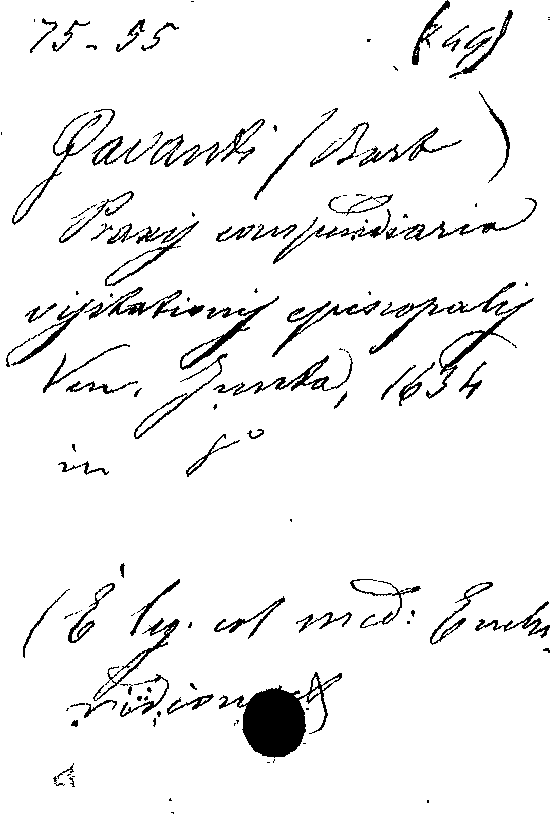 75-55 (Rag)
Gavanti (Bart)
Praxis compendiaria
visitationis episcopalis
Ven. Junta, 1634
in 8º
(È leg. col med: Enchi